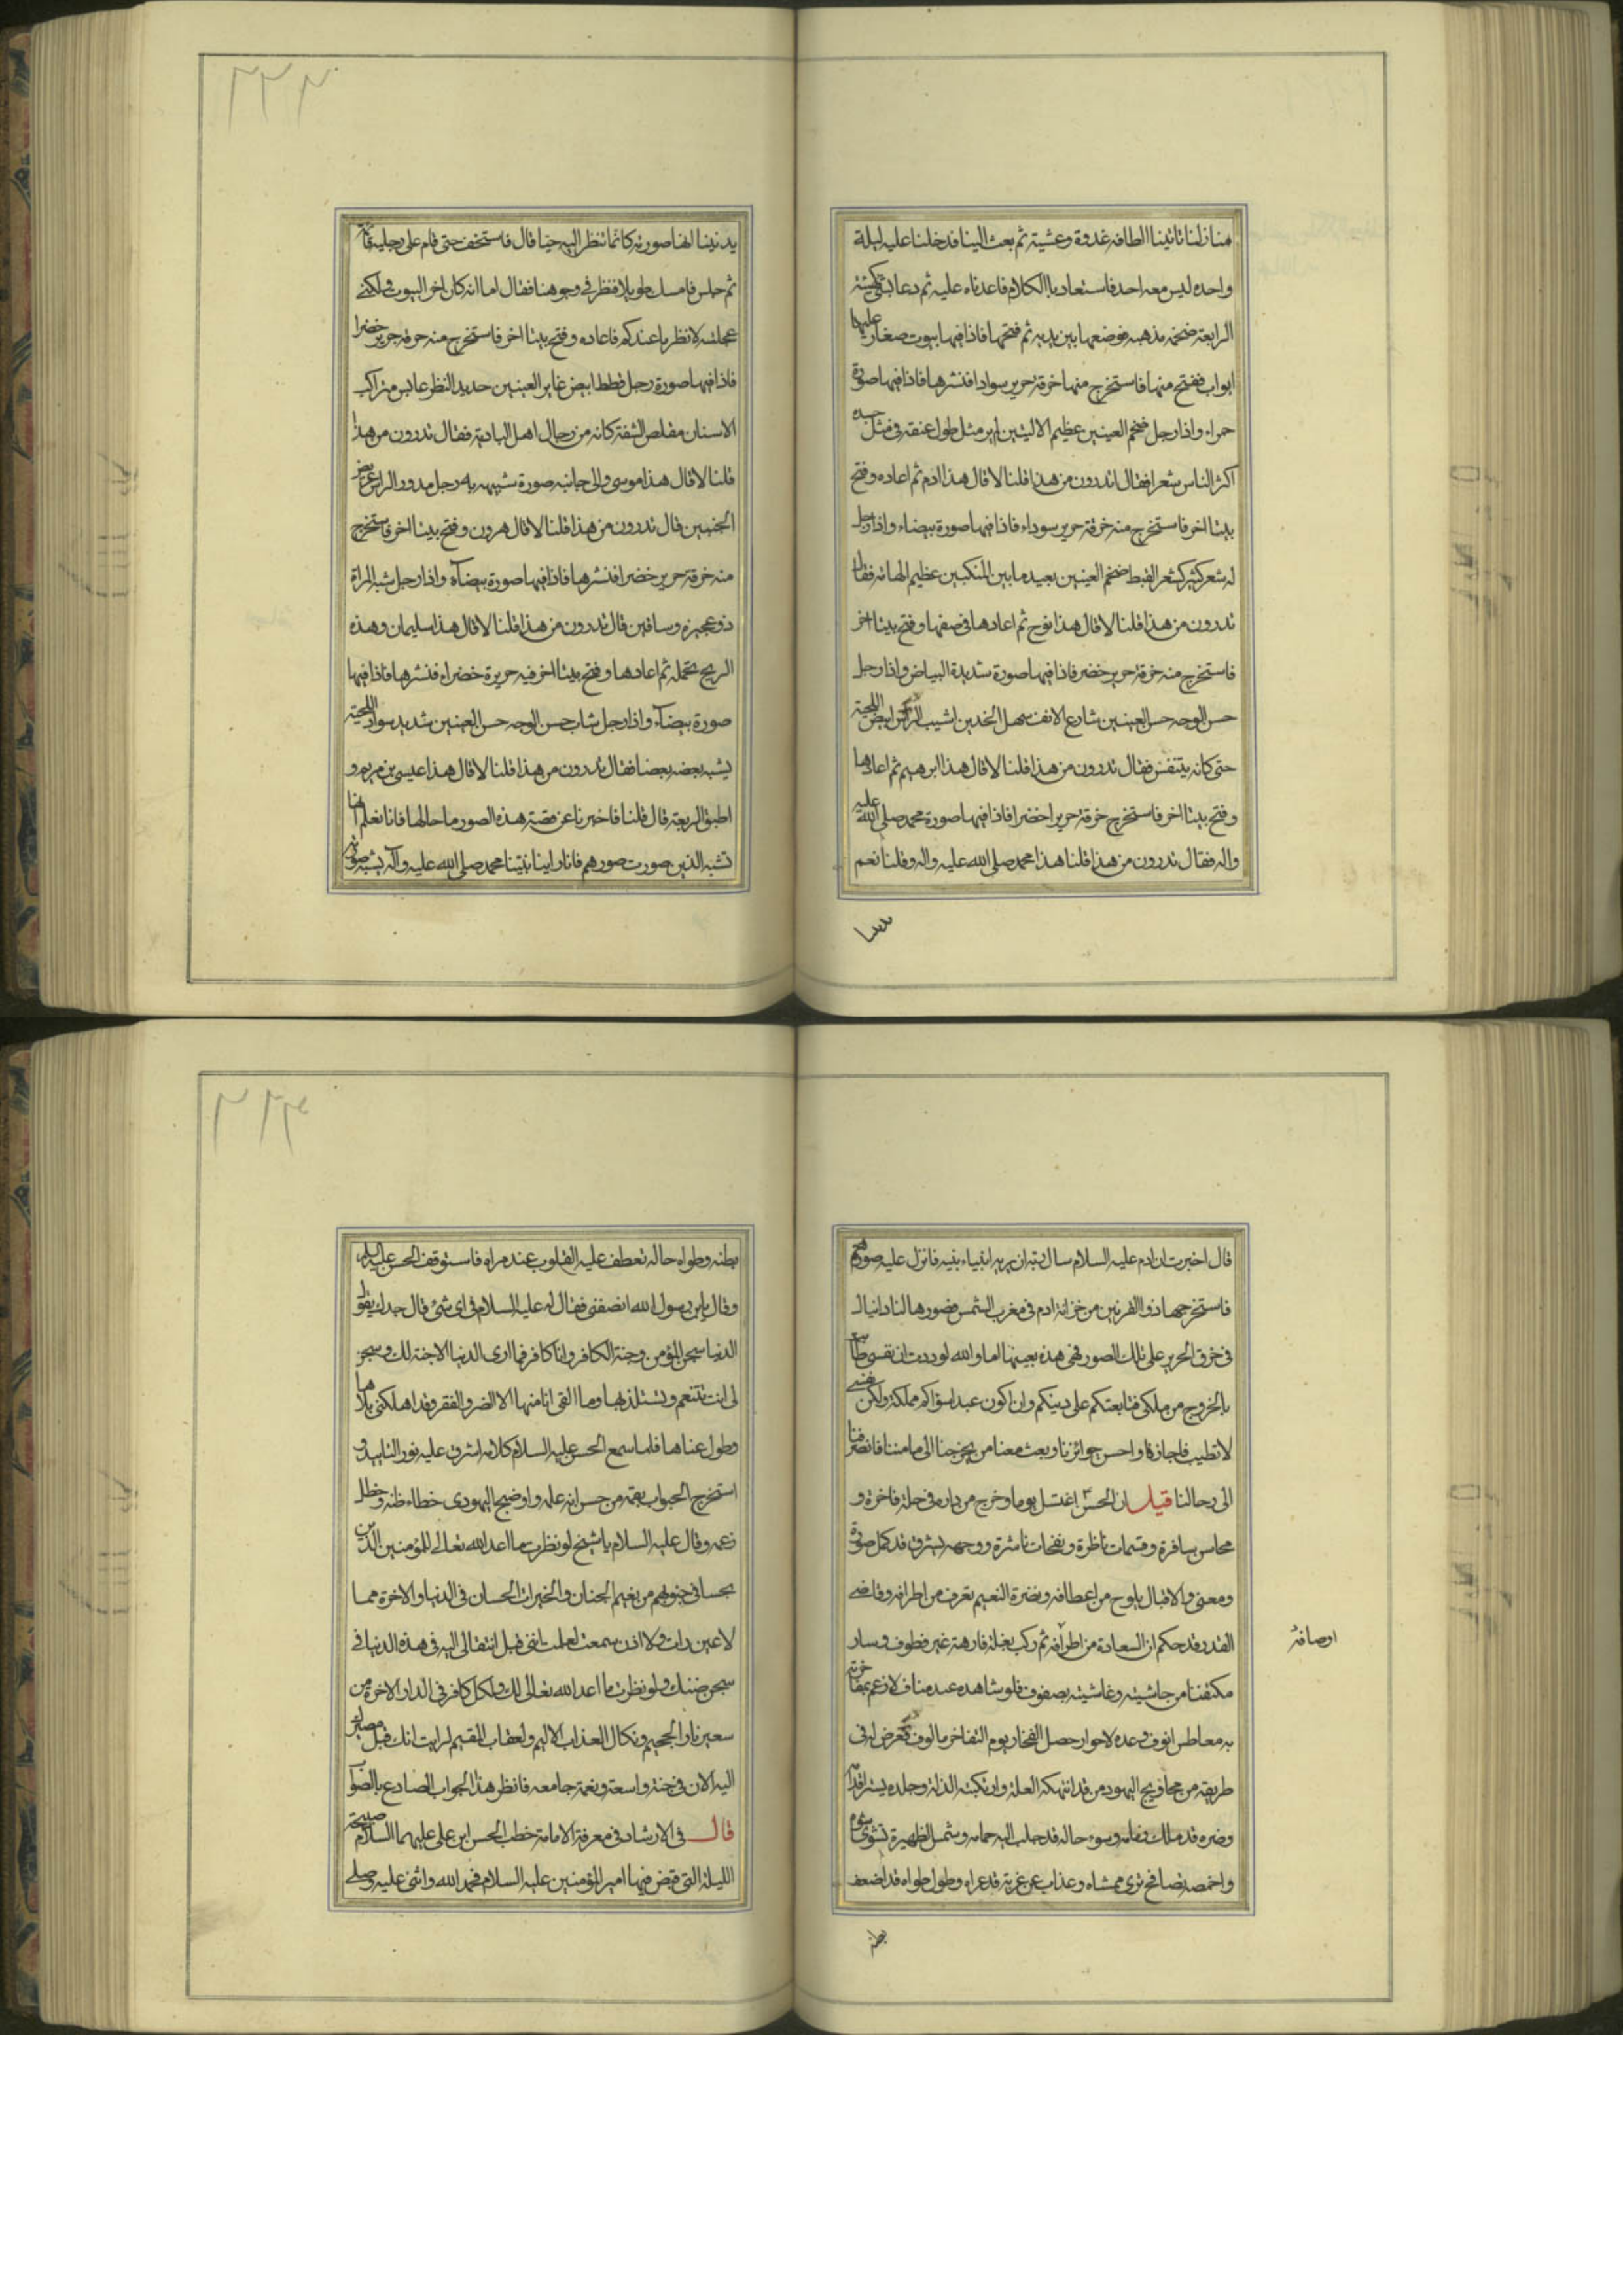 منازلنا تاتينا الطافه غدوة وعشية ثم بعث الينا فدخلنا عليه ليلة
واحده ليس معه احد فاستعادنا الكلام فاعدناه عليه ثم دعا بشئ كهيئة
الرابعة ضخمة مذهبه فوضعها بين يديه ثم فتحها فاذا فيها بيوت صغار عليها
ابواب ففتح منها فاستخرج منها خرقة حرير سوادا فنشرها فاذا فيها صورة
حمراء واذا رجل ضخم العينين عظيم الاليتين لم ير مثل طول عنقه في مثل جسده
اكثر الناس شعرا فقال اتدرون من هذا قلنا لا قال هذا ادم ثم اعاده وفتح
بيتا اخر فاستخرج منه خرقة حرير سوداء فاذا فيها صورة بيضاء واذا رجل
له شعر كثير كشعر القبط ضخم العينين بعيد ما بين المنكبين عظيم الهامة فقال
تدرون من هذا قلنا لا قال هذا نوح ثم اعادها في صفها وفتح بيتا اخر
فاستخرج منه خرقة حرير خضر فاذا فيها صورة شديدة البياض واذا رجل
حسن الوجه حسن العينين شارع الانف سهل الخدين اشيب الراس ابيض اللحية
حتى كانه يتنفس فقال تدرون من هذا قلنا لا قال هذا ابرهيم ثم اعادها
وفتح بيتا اخر فاستخرج خرقة حرير اخضرا فاذا فيها صورة محمد صلى الله عليه
واله فقال تدرون من هذا قلنا هذا محمد صلى الله عليه واله وقلنا نعم
٢٢٣
يد نبينا انها صورته كانما ننظر اليه حيا قال فاستخف حتى قام على رجليه
ثم جلس فامسك طويلا فنظر في وجوهنا فقال اما انه كان اخر البيوت ولكنى
عجلته لانظر ما عندكم فاعاده وفتح بيتا اخر فاستخرج منه خرقة حرير خضرا
فاذا فيها صورة رجل قطط ابيض غاير العينين حديد النظر عابس متراكب
الاسنان مقلص الشفة كانه من رجال اهل البادية فقال تدرون من هذا
قلنا لا قال هذا موسى والى جانبه صورة شبيهه به رجل مدور الراس عريض
الجنبين قال تدرون من هذا قلنا لا قال هرون وفتح بيتا اخر فاستخرج
منه خرقة حرير خضرا فنشرها فاذا فيها صورة بيضآء واذا رجل شبه المراة
ذو عجيزة وساقين قال تدرون من هذا قلنا لا قال هذا سليمان وهذه
الريح تحمله ثم اعادها وفتح بيتا اخر فيه حريرة خضراء فنشرها فاذا فيها
صورة بيضآء واذا رجل شاب حسن الوجه حسن العينين شديد سواد اللحية
يشبه بعضه بعضا فقال تدرون من هذا قلنا لا قال هذا عيسى بن مريم و
اطبق الربعة قال قلنا فاخبرنا عن قصة هذه الصور ما حالها فانا نعلم انها
تشبه الذين صورت صورهم فانا راينا نبينا محمد صلى الله عليه وآله يشبه صورته
قال اخبرت ان ادم عليه السلام سال ربه ان يريه انبياء بنيه فانزل عليه صورهم
فاستخرجها ذوالقرنين من خزانة ادم في مغرب الشمس فصورها لنا دانيال
في خرق الحرير على تلك الصور فهى هذه بعينها اما والله لوددت ان نفسى طابت
بالخروج من ملكى فتابعتكم على دينكم وان اكون عبدا لسؤاكم مملكة ولكن نفسى
لا تطيب فاجازنا واحسن جوائزنا وبعث معنا من يخرجنا الى مامننا فانصرفنا
الى رحالنا قيل ان الحسن اغتسل يوما وخرج من داره في حلة فاخرة و
محاسن سافرة وقسمات ناظرة ونفحات ناشرة ووجهه يشرق قد كمل صورة
ومعنى والاقبال يلوح من اعطافه ونضرة النعيم تعرف من اطرافه وقاضى
القدر قد حكم ان السعادة من اطرافه ثم ركب بغلة فارهة غير قطوف وسار
اوصافه
مكتفنا من حاشيته وغاشيته بصفوف فلو شاهده عبد مناف لارغم بمفاخرته
به معاطس انوف وعده لاحواز حصل الفخار يوم التفاخر مالوف فعرض له في
طريقه من محاويج اليهود من قد انتهكه العلة وارتكبته الذلة وجلده يستر اقدامه
وضره قد ملك زمامه وسوء حاله قد جلب اليه حمامه وشمس الظهيرة تشوى شواه
واخمصه تصافح ثرى ممشاه وعذاب عن غربة قد عراه وطول طواه قد اضعف
بطنه
٢٢٤
بطنه وطواه حاله تعطف عليه القلوب عند مراه فاستوقف الحسن عليه السلام
وقال يابن رسول الله انصفنى فقال له عليه السلام في اى شئ قال جدك يقول
الدنيا سجن المؤمن وجنة الكافر وانا كافر فما ارى الدنيا الا جنة لك وسجن
لى انت تتنعم وتستلذ بها وما القى انا منها الا الضر والفقر وقد اهلكنى بلاها
وطول عناها فلما سمع الحسن عليه السلام كلامه اشرق عليه نور التاييد و
استخرج الجواب بفهمه من خزانه علمه واوضح اليهودى خطاء ظنه وخطل
زعمه وقال عليه السلام يا شيخ لو نظرت ما اعد الله تعالى للمؤمنين الذين
تجسا في جنوبهم من نعيم الجنان والخيرات الحسان في الدنيا والاخرة مما
لا عين رات ولا اذن سمعت لعلمت انى قبل انتقالى اليه في هذه الدنيا في
سجن ضنك ولو نظرت ما اعد الله تعالى لك ولكل كافر في الدار الاخرة من
سعير نار الجحيم ونكال العذاب الاليم ولعقاب المقيم لرايت انك قبل مصيرك
اليه الان في جنة واسعة ونعمة جامعه فانظر هذا الجواب الصادع بالصواب
قال في الارشاد في معرفة الامامة خطب الحسن ابن على عليهما السلام صبيحة
الليلة التى قبض فيها امير المؤمنين عليه السلام فحمد الله واثنى عليه وصلى